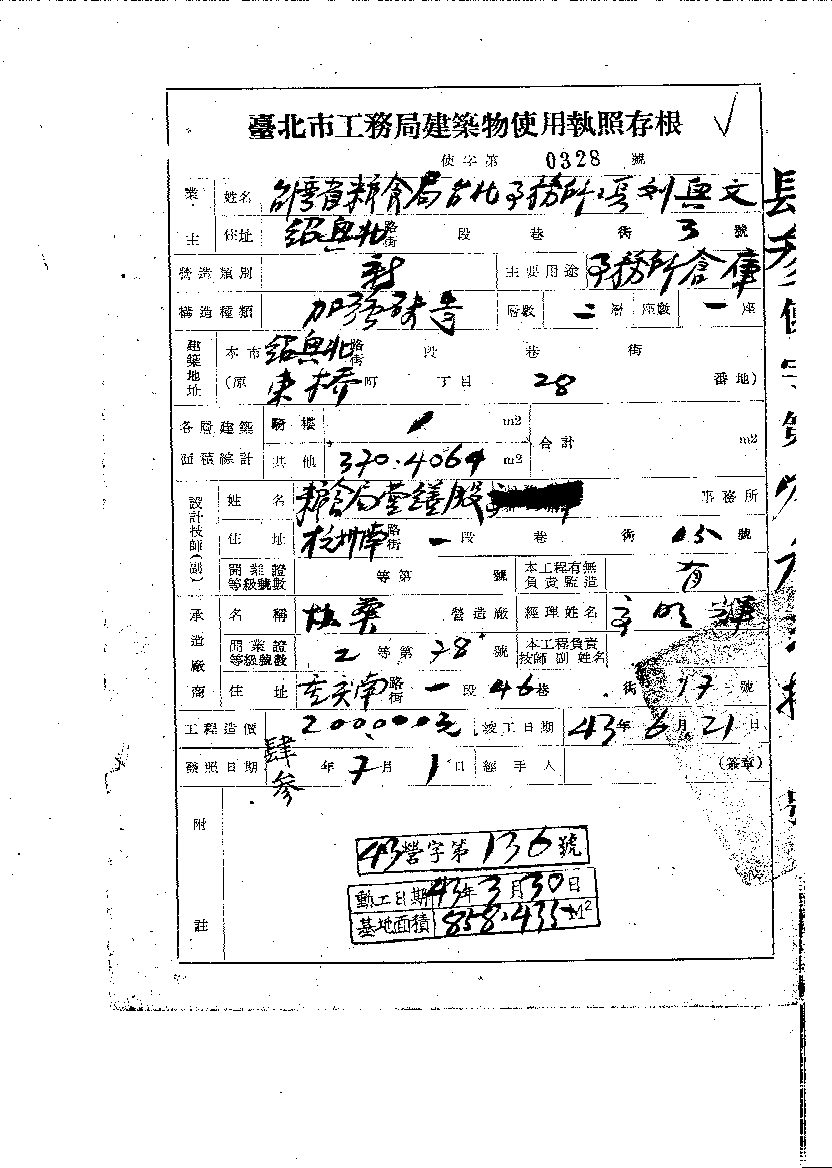 臺北市工務局建築物使用執照存根 ✓
使字第 0328 號
業主 姓名 台灣省糧食局台北事務所長 劉興文
住址 紹興北 路街 段 巷 街 3 號
營造類別 新 主要用途 事務所倉庫
構造種類 加強磚造 層數 二 層 座數 一 座
建築地址 本市 紹興北 路街 段 巷 街
(原 東橋 町 丁目 28 番地)
各層建築面積總計 騎樓 m2 合計 m2
其他 370.4064 m2
設計技師(副) 姓名 糧食局營繕股 事務所
住址 杭州南 路街 一 段 巷 街 15 號
開業證等級號數 等第 號 本工程有無負責監造 有
承造廠商 名稱 營造廠 經理姓名
開業證等級號數 乙 等第 78 號 本工程負責技師 副 姓名
住址 重慶南 路街 一 段 46 巷 街 17 號
工程造價 200,000元 竣工日期 43年 6月 21日
發照日期 肆參 年 7 月 1 日 經手人 (簽章)
附註
43營字第 136 號
動工日期 43年3月30日
基地面積 858.435 M2